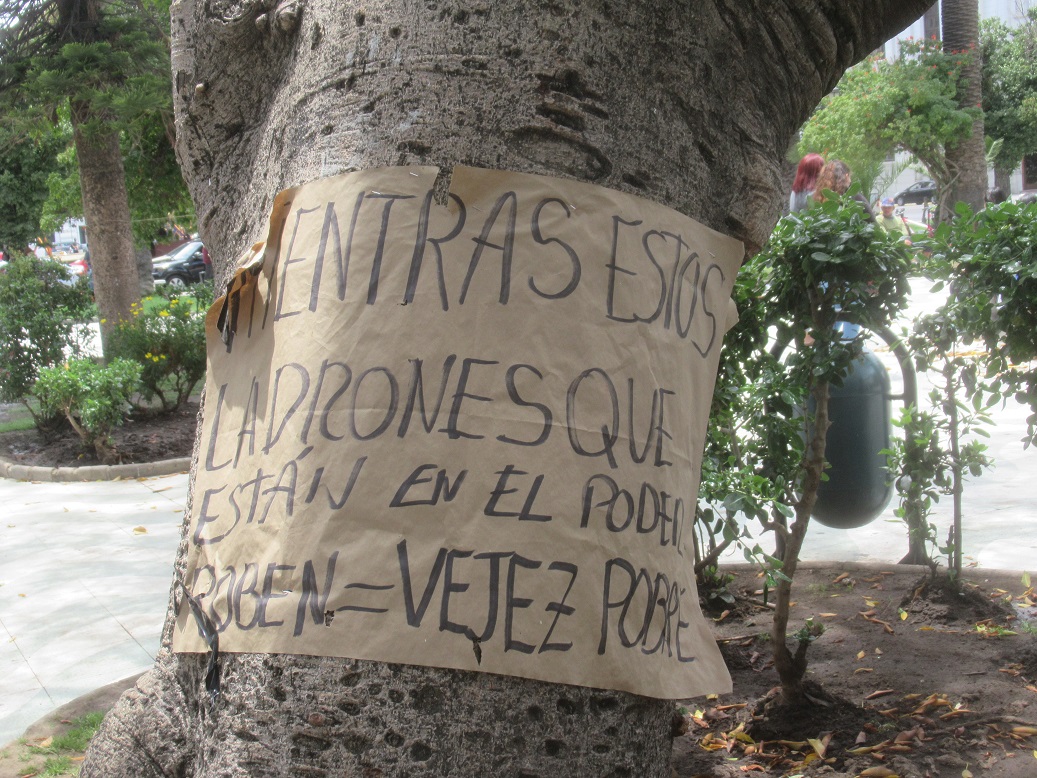 MIENTRAS ESTOS
LADRONES QUE
ESTÁN EN EL PODER
ROBEN = VEJEZ POBRE